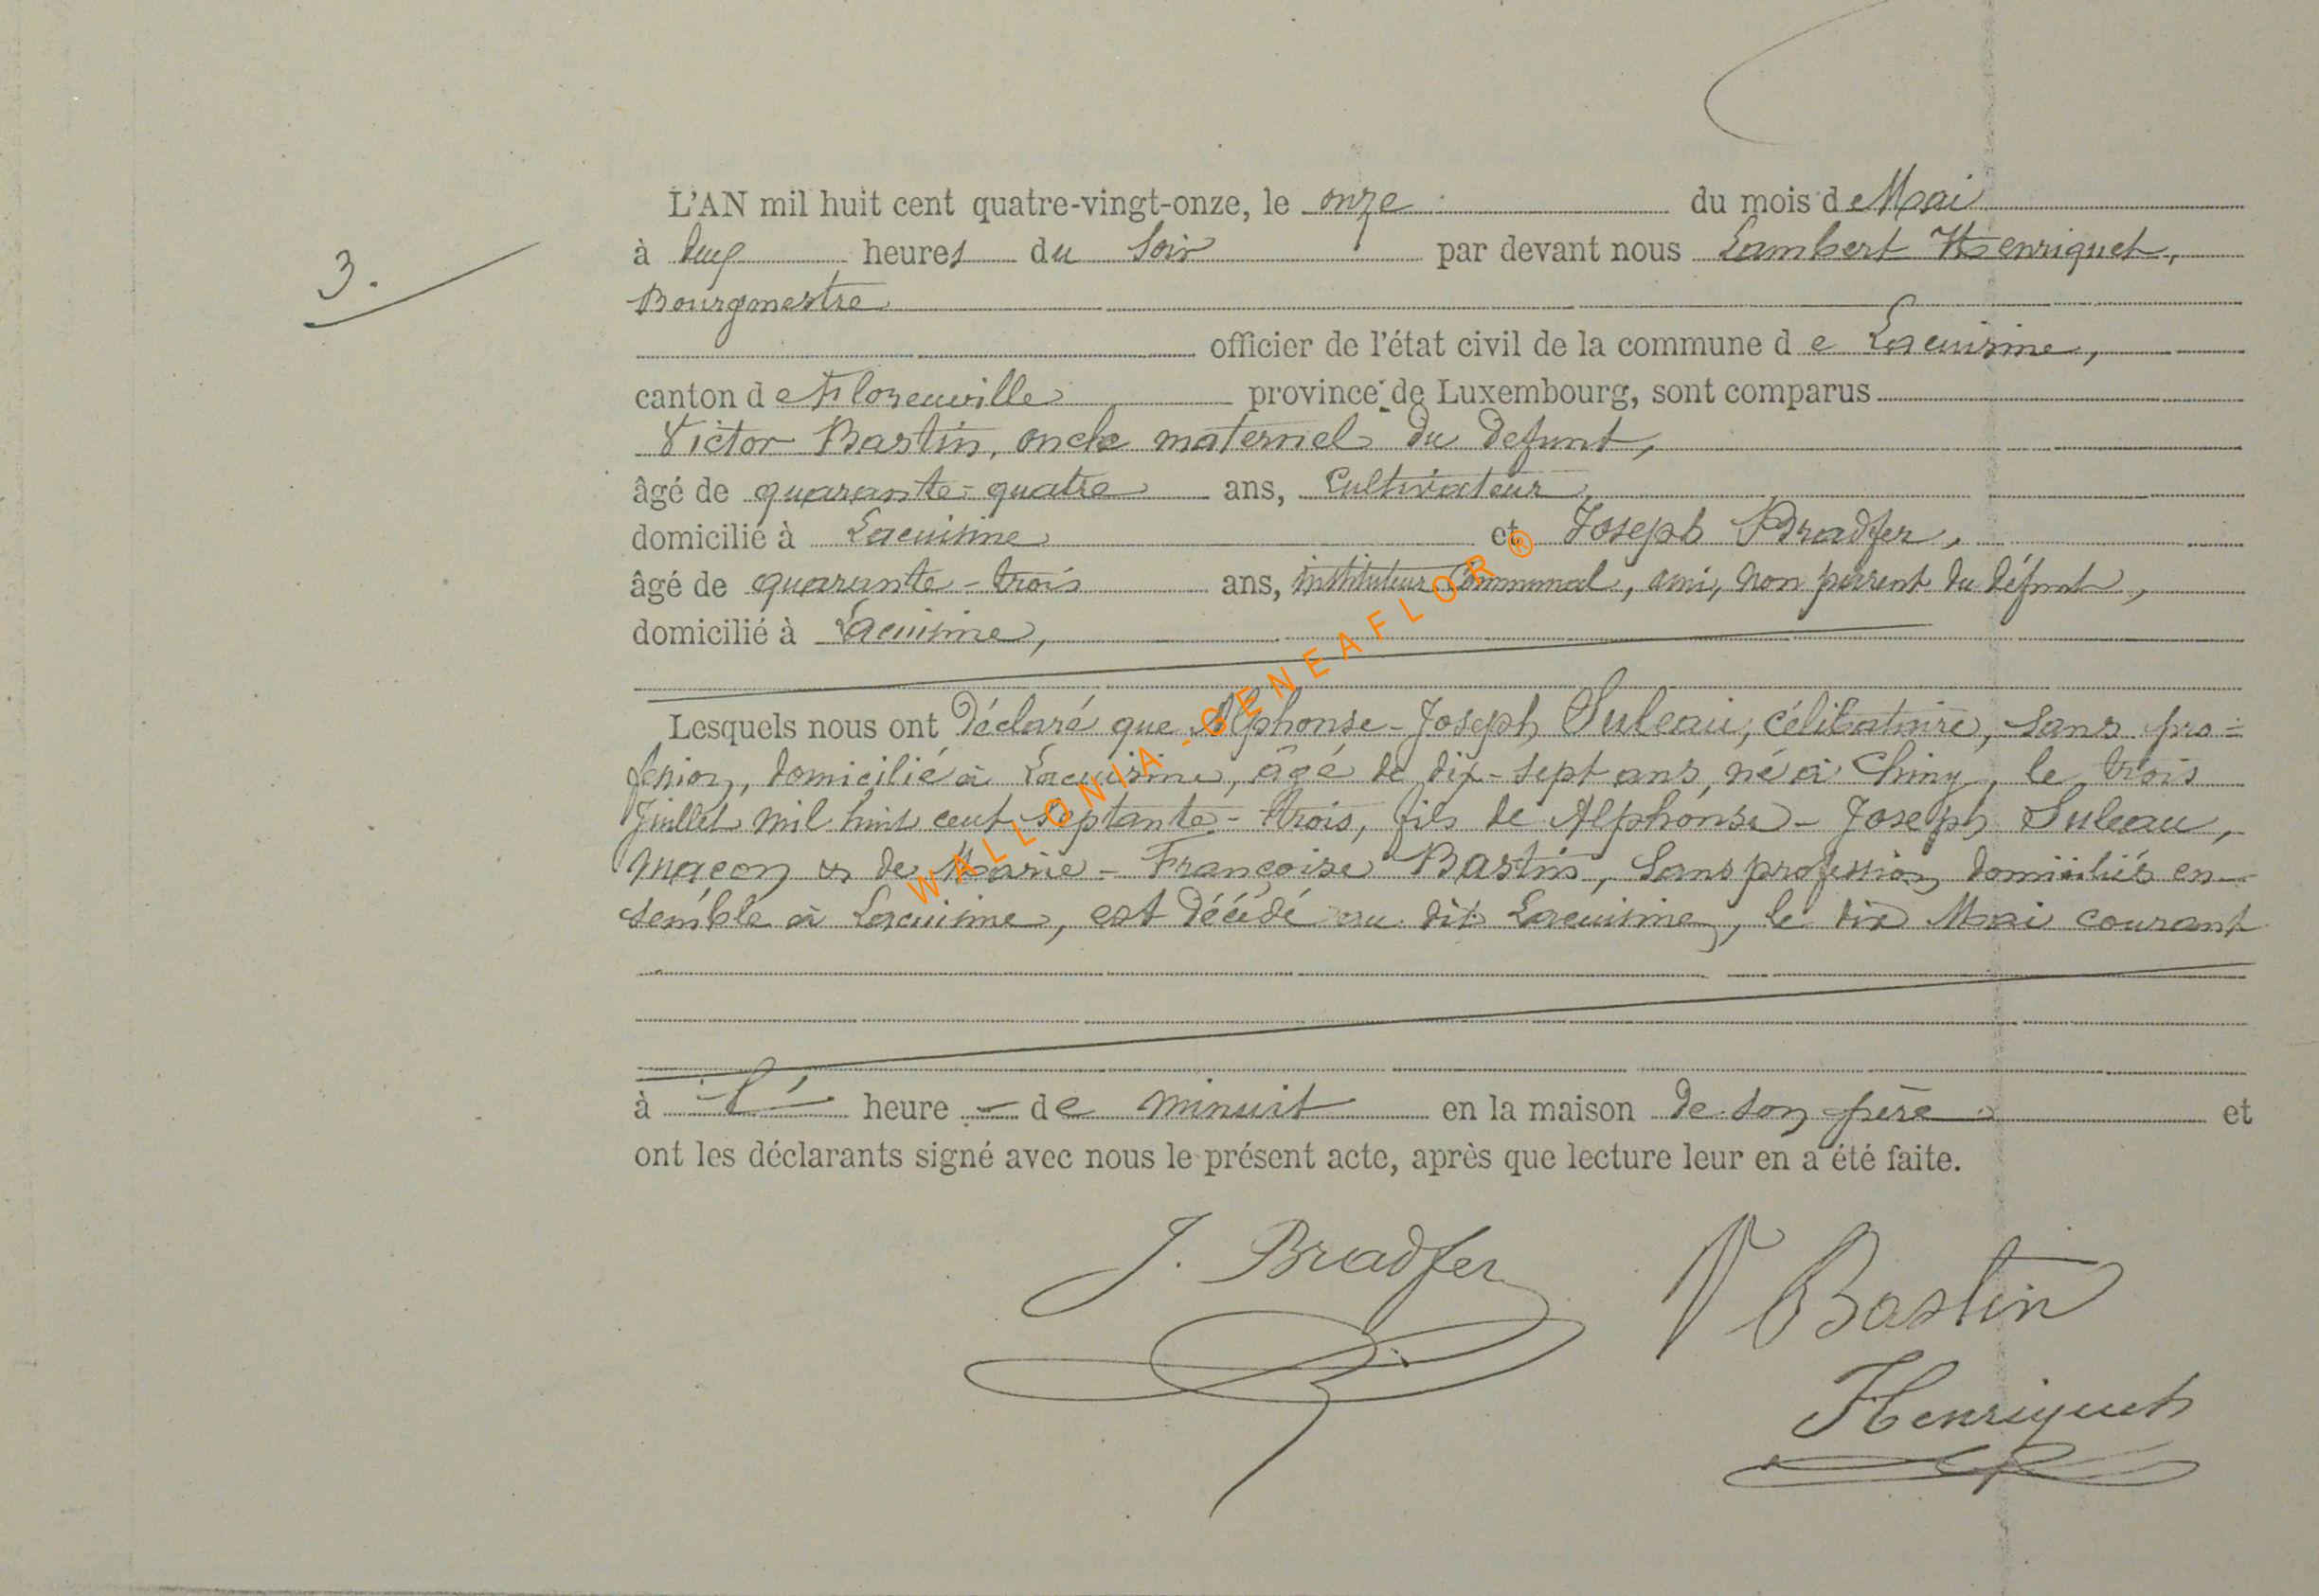 L'AN mil huit cent quatre-vingt-onze, le onze du mois de Mai
à heures du soir par devant nous Lambert Henriquet,
Bourgmestre
officier de l'état civil de la commune de Lacuisine,
canton de Florenville province de Luxembourg, sont comparus
Victor Bastin, oncle maternel du defunt,
âgé de quarante-quatre ans, Cultivateur,
domicilié à Lacuisine et Joseph Bradfer,
âgé de quarante-trois ans, instituteur Communal, ami, non parent du défunt,
domicilié à Lacuisine,
3.
Lesquels nous ont déclaré que Alphonse-Joseph Suleau, célibataire, sans pro=
fession, domicilié à Lacuisine, âgé de dix-sept ans, né à Chiny, le trois
Juillet mil huit cent septante-trois, fils de Alphonse-Joseph Suleau,
maçon et de Marie-Françoise Bastin, sans profession domiciliés en-
semble à Lacuisine, est décédé au dit Lacuisine, le dix Mai courant
à l' heure - de minuit en la maison de son père et
ont les déclarants signé avec nous le présent acte, après que lecture leur en a été faite.
J. Bradfer
V Bastin
Henriquet
WALLONIA-GENEAFLOR ®